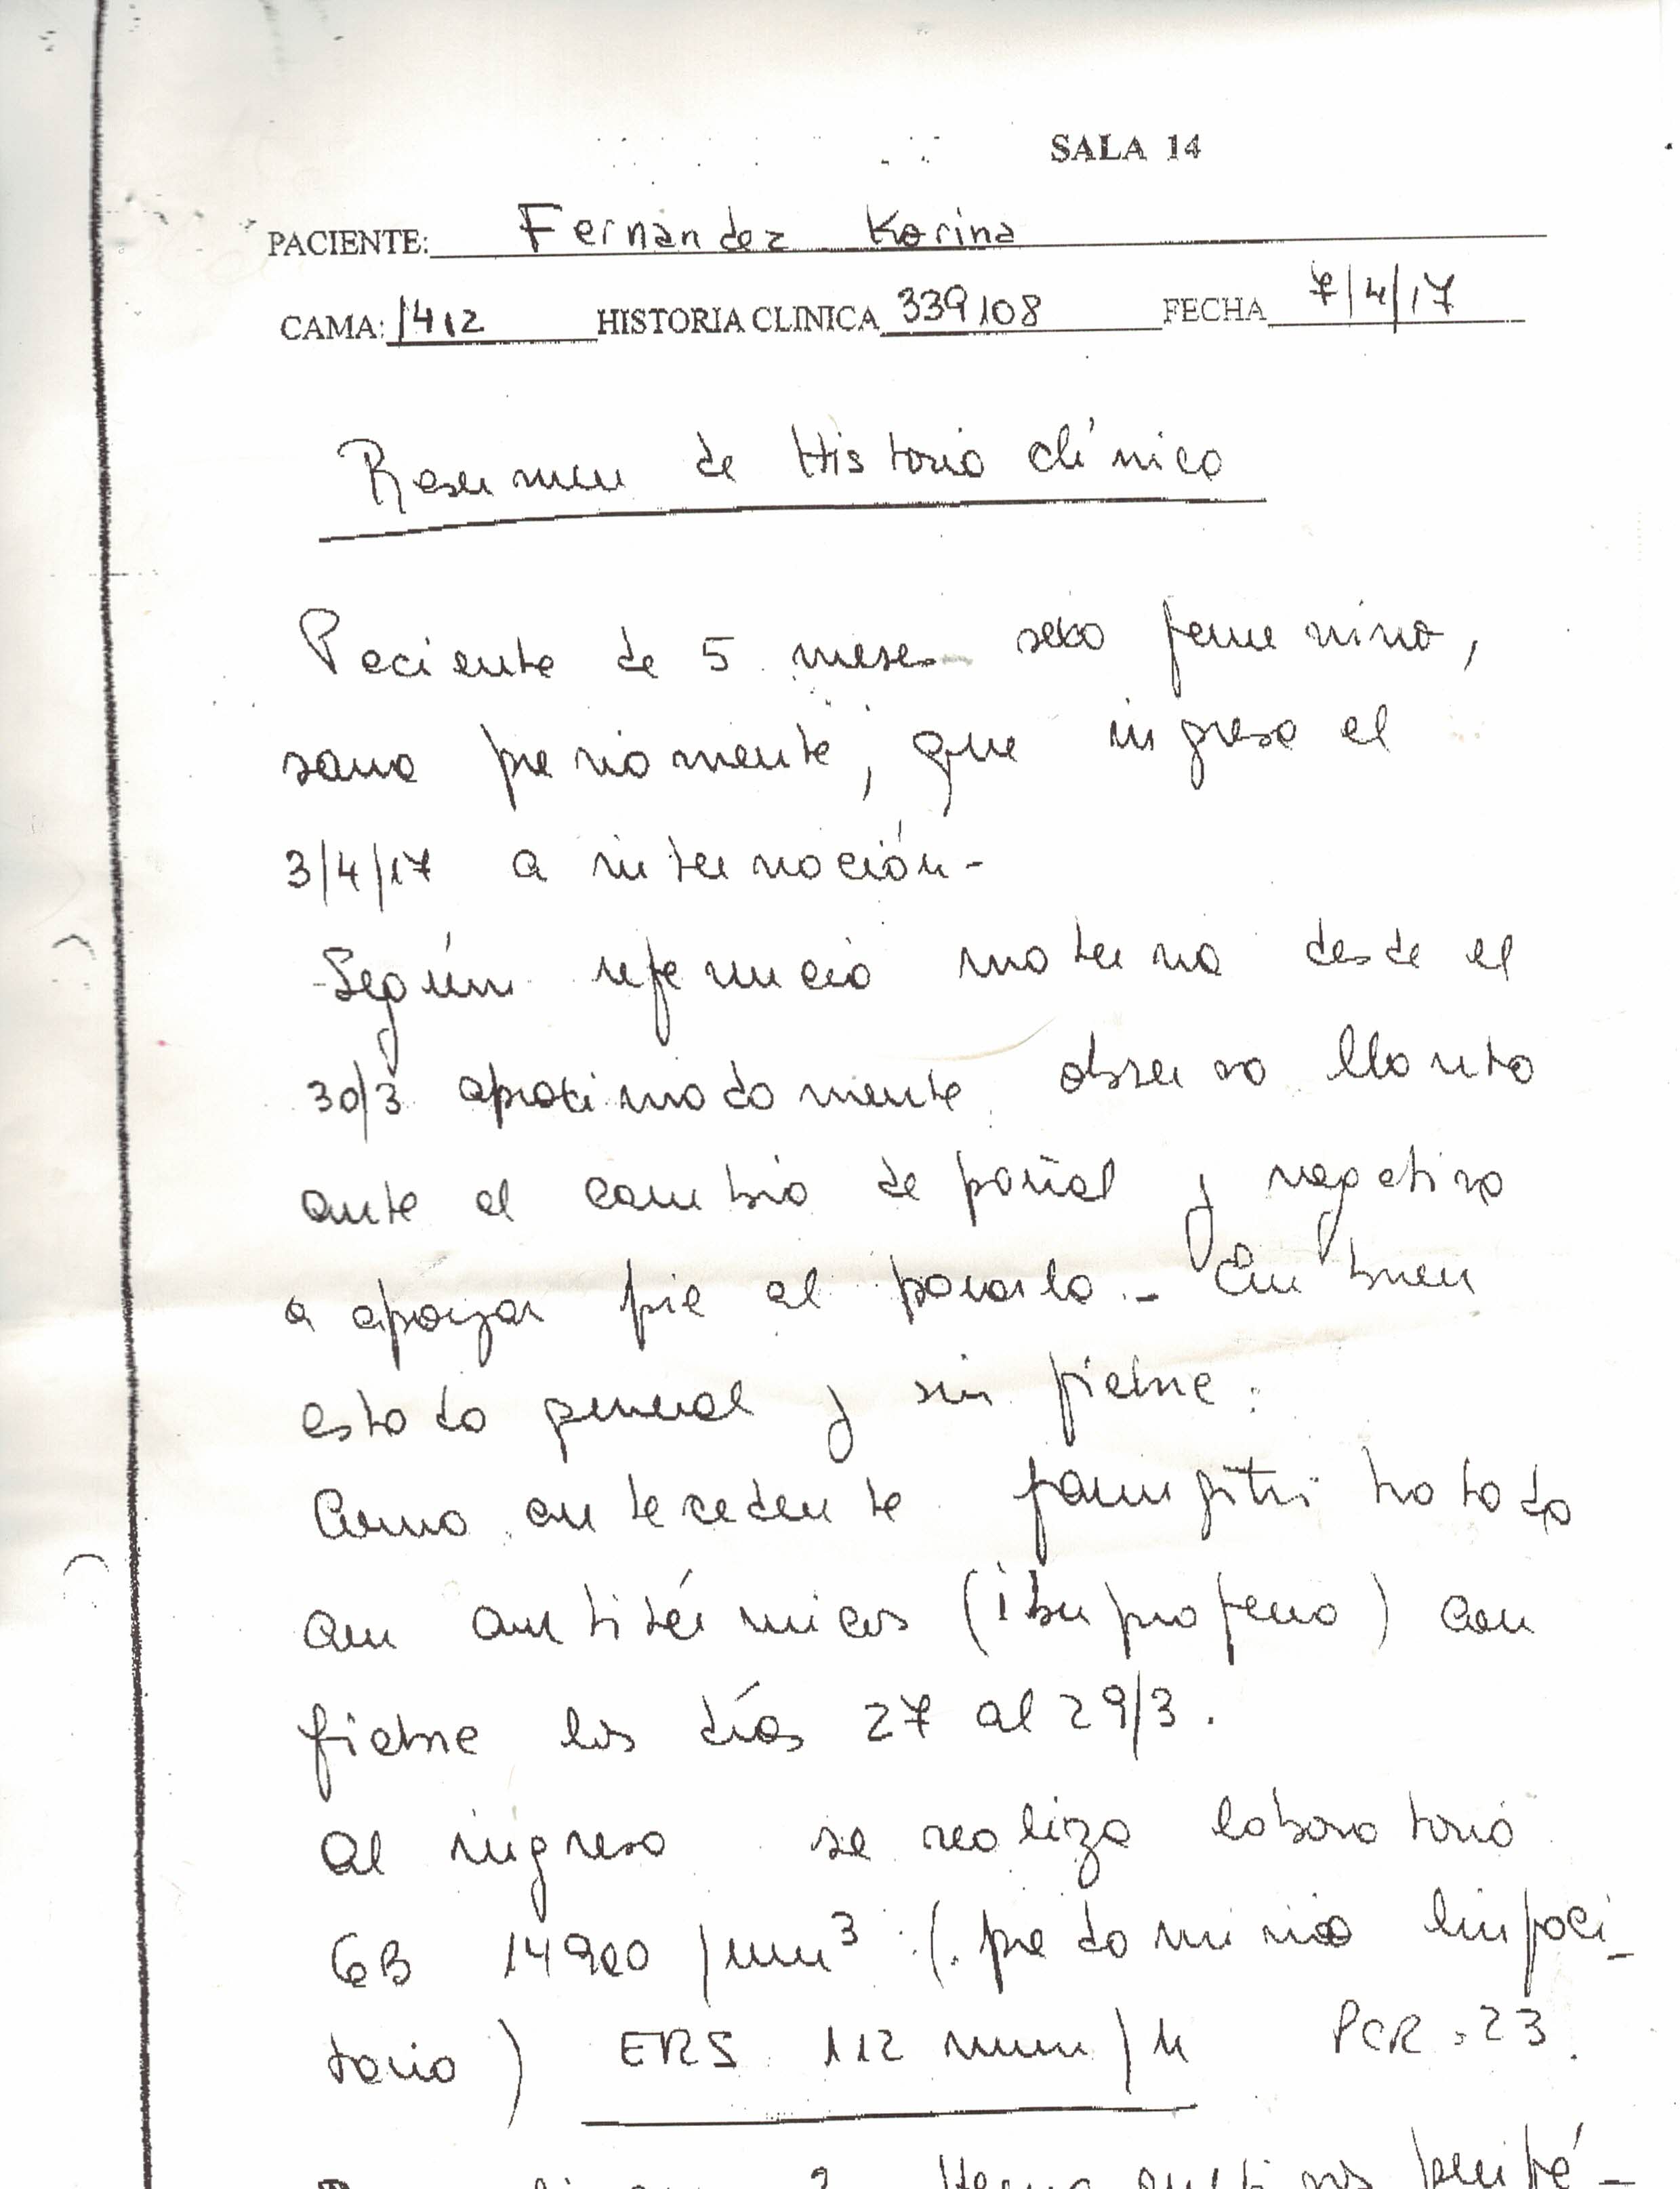 SALA 14
PACIENTE: Fernandez Korina
CAMA: 1412 HISTORIA CLINICA 339108 FECHA 7/4/17
Resumen de Historia clínica
Paciente de 5 meses sexo femenino,
sana previamente, que ingresa el
3/4/17 a internación-
-Según referencia materna desde el
30/3 aproximadamente observa llanto
ante el cambio de pañal y negativa
a apoyar pie al pararla.- En buen
estado general y sin fiebre.
Como antecedente faringitis tratada
con antitérmicos (ibuprofeno) con
fiebre los días 27 al 29/3.
Al ingreso se realiza laboratorio
GB 14900/mm³ (predominio linfoci-
tario) ERS 112 mm/h PCR = 23.
2 Hemocultivos perifé-